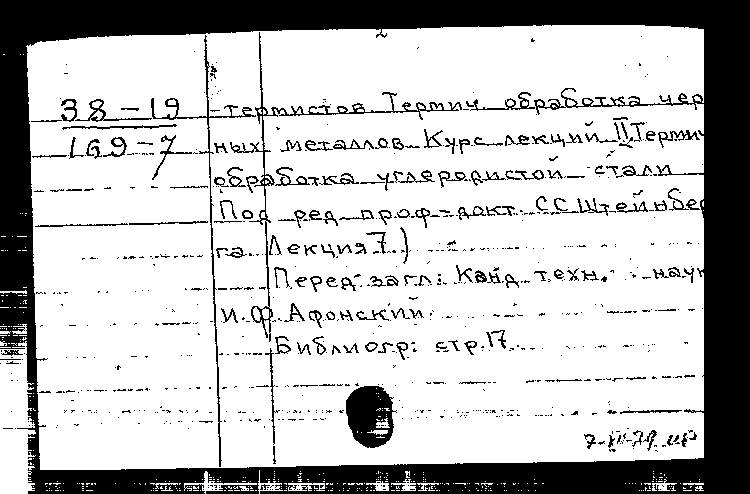 2
38-19
169-7
-термистов. Термич. обработка чер
ных металлов. Курс лекций II. Термич
обработка углеродистой стали
Под ред. проф-докт. С.С. Штейнбер
га. Лекция 7.)
Перед загл: Канд. техн. наук
И.Ф. Афонский.
Библиогр: стр. 17